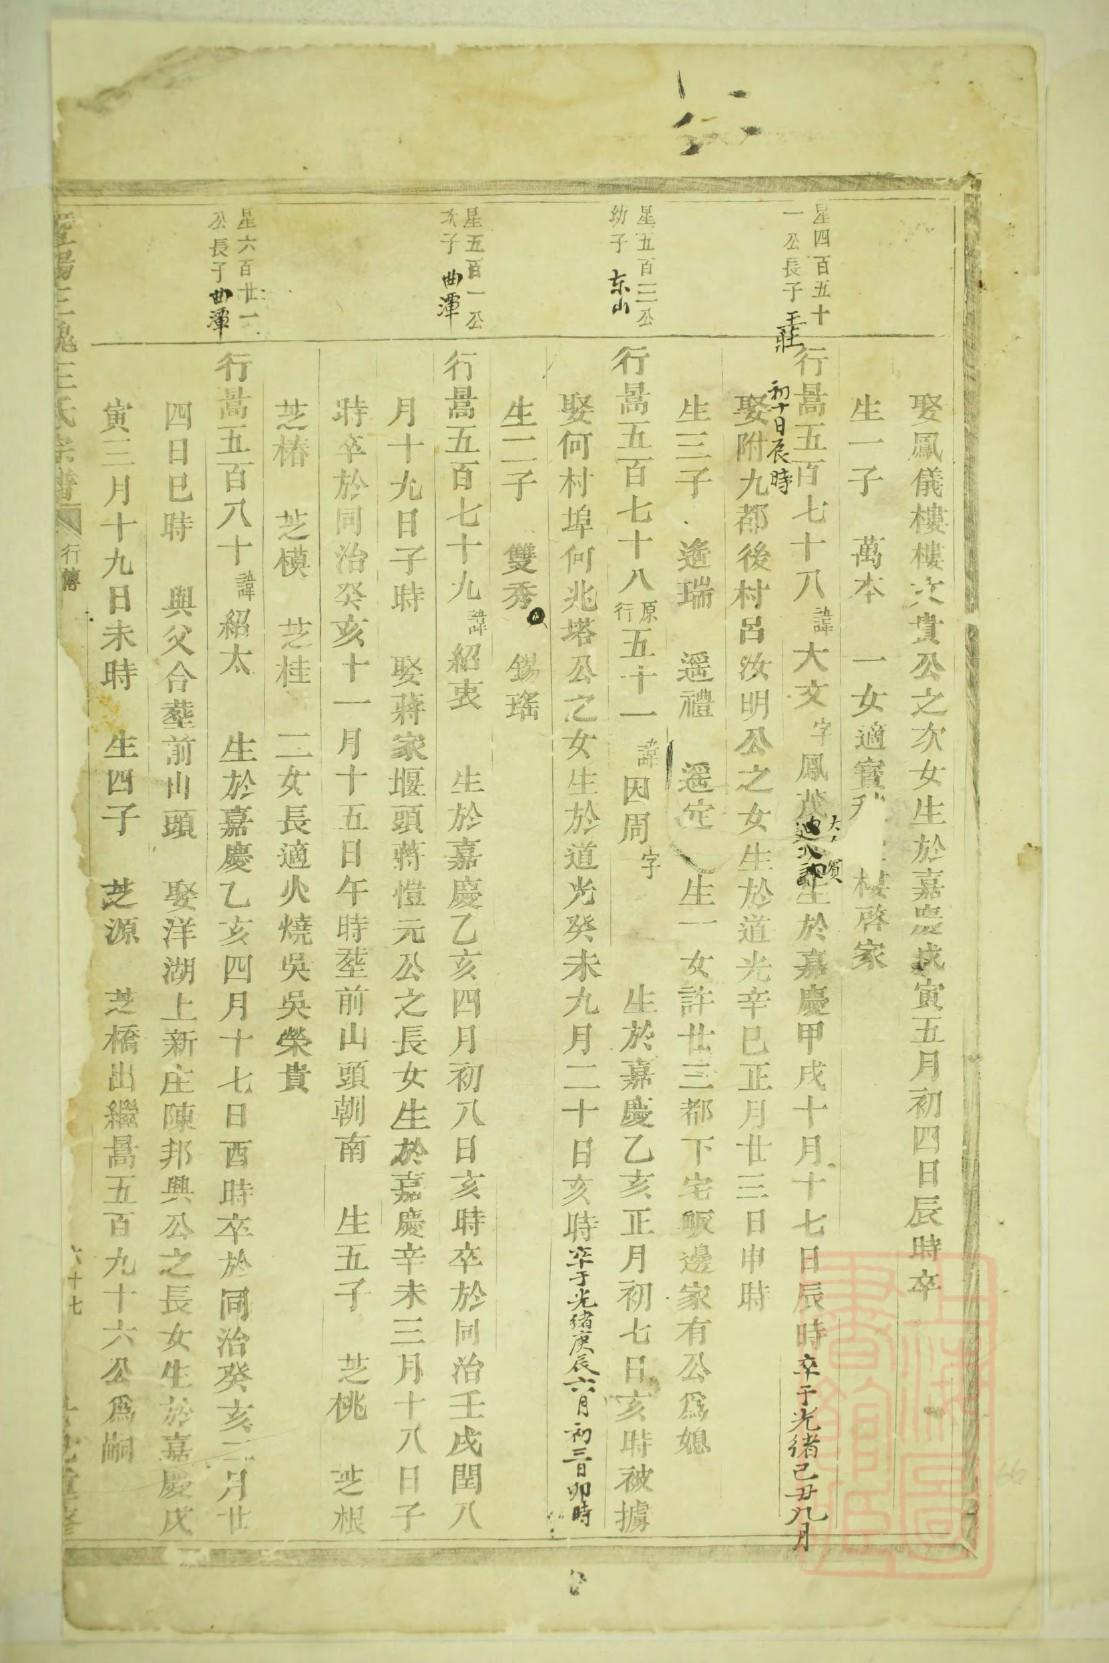 娶鳳儀樓樓文貴公之次女生於嘉慶戊寅五月初四日辰時卒
生一子 萬本 一女適 樓啓家
星四百五十
一公長子 王莊
行暠五百七十八 諱 大文 字 鳳 生於嘉慶甲戌十月十七日辰時 卒于光緒己丑九月
初十日辰時
娶附九都後村呂汝明公之女生於道光辛巳正月廿三日申時
生三子 遙瑞 遥禮 遥 生一女許廿三都下宅畈邊家有公爲媳
星五百三公
幼子 东山
行暠五百七十八 原行 五十一 諱 因周 字 生於嘉慶乙亥正月初七日亥時被擄
娶何村埠何兆塔公之女生於道光癸未九月二十日亥時 卒于光绪庚辰六月初三日卯時
生二子 雙秀 錫瑤
星五百一公
次子 曲潭
行暠五百七十九 諱 紹衷 生於嘉慶乙亥四月初八日亥時卒於同治壬戌閏八
月十九日子時 娶蔣家堰頭蔣愷元公之長女生於嘉慶辛未三月十八日子
時卒於同治癸亥十一月十五日午時塟前山頭朝南 生五子 芝桃 芝根
芝椿 芝模 芝桂 二女長適火燒吳吳榮貴
星六百廿一
公長子 曲潭
行暠五百八十 諱 紹太 生於嘉慶乙亥四月十七日酉時卒於同治癸亥二月廿
四日巳時 與父合塟前山頭 娶洋湖上新庄陳邦興公之長女生於嘉慶戊
寅三月十九日未時 生四子 芝源 芝橋出繼暠五百九十六公爲嗣
三槐王氏宗譜 行傳 六十七